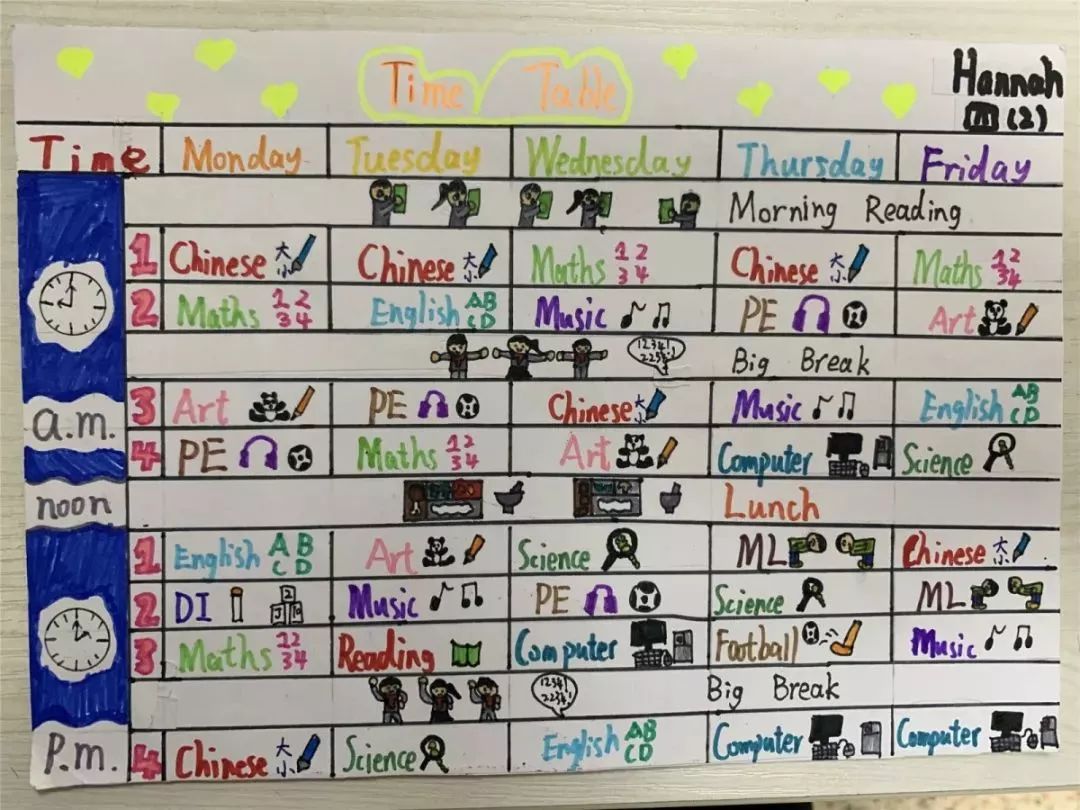 Time Table
Hannah
三(2)
Time Monday Tuesday Wednesday Thursday Friday
Morning Reading
1 Chinese 大小 Chinese 大小 Maths 1 2 3 4 Chinese 大小 Maths 1 2 3 4
2 Maths 1 2 3 4 English AB CD Music PE Art
Big Break
a.m.
3 Art PE Chinese 大小 Music English AB CD
4 PE Maths 1 2 3 4 Art Computer Science
noon Lunch
1 English A B C D Art Science ML Chinese 大小
2 DI Music PE Science ML
3 Maths 12 34 Reading Computer Football Music
Big Break
P.m.
4 Chinese 大小 Science English AB CD Computer Computer